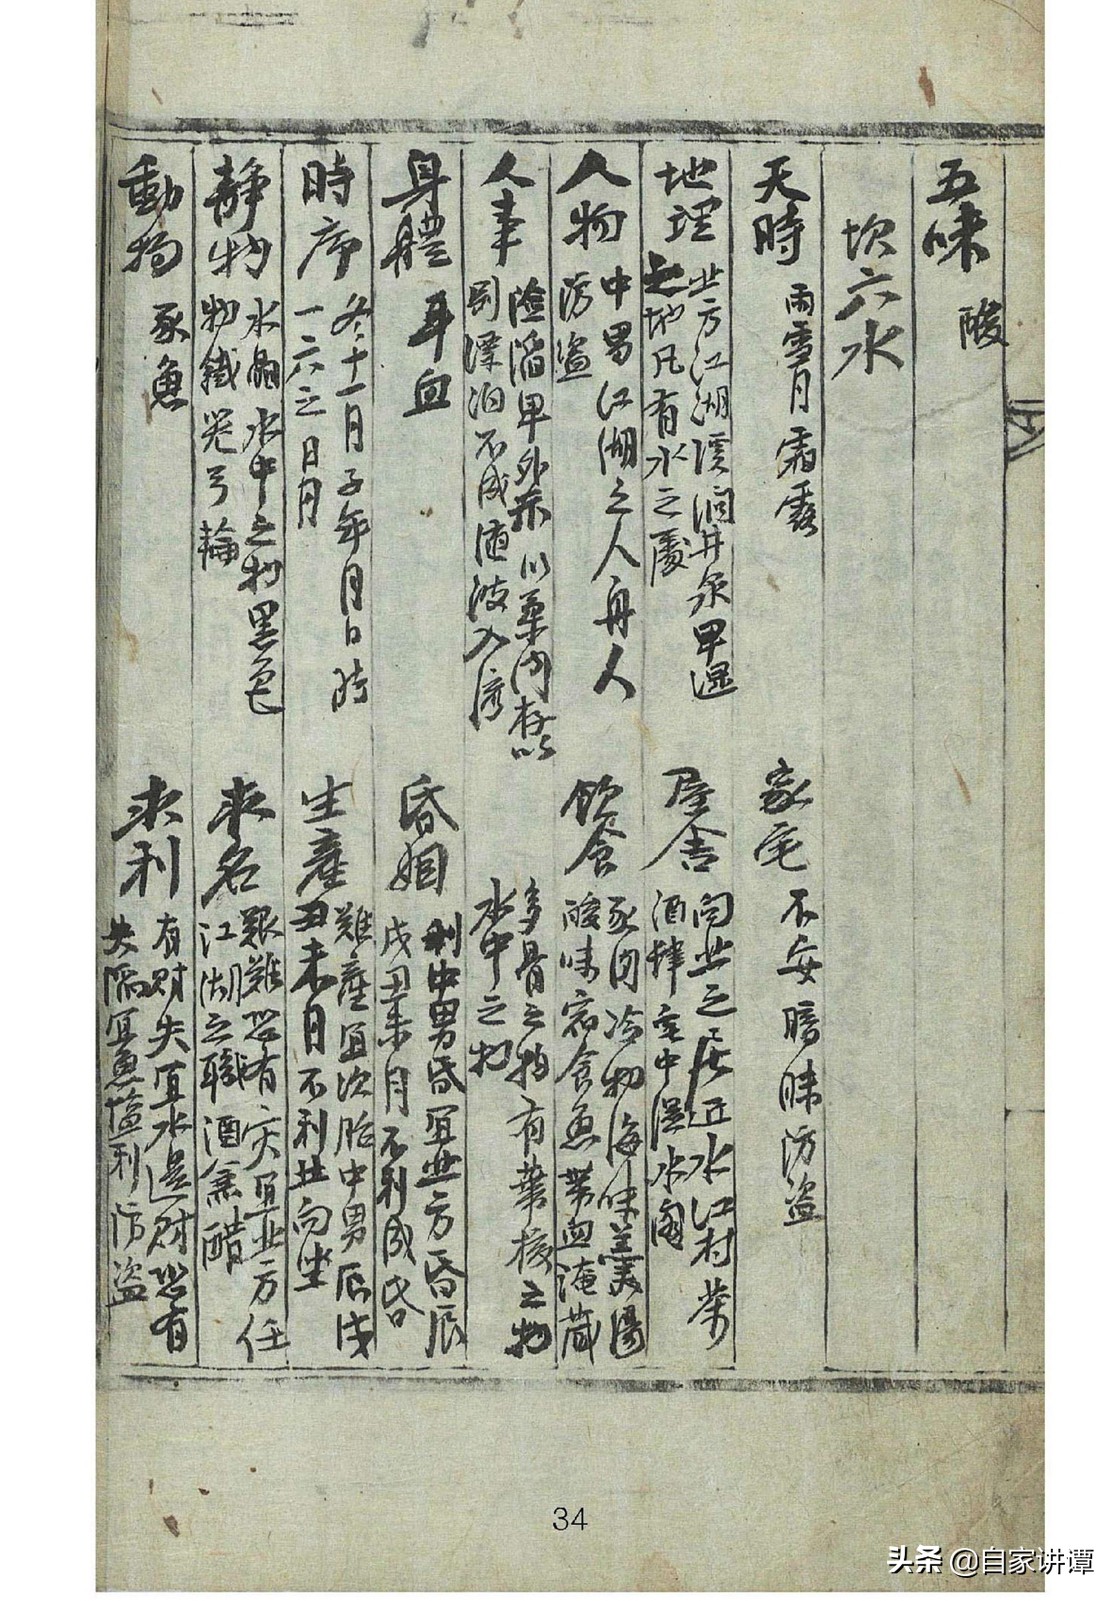 五味 酸
坎六水
天時 雨雪月霜露
家宅 不安暗昧防盜
地理 北方江湖溪澗井泉卑湿
之地凡有水之處
屋舍 向北之居近水江村茶
酒肆宅中湿水閣
人物 中男江湖之人舟人
防盜
飲食 豕肉冷物海味羹湯
酸味宿食魚帶血淹藏
多骨之物有華核之物
水中之物
人事 險陷卑外示以柔内存以
剛漂泊不成随波入
身體 耳血
昏姻 利中男昏宜北方昏辰
戌丑未月不利成昏
時序 冬十一月子年月日時
一六之日月
生產 難產宜次胎中男辰戌
丑未月不利北向坐
靜物 水晶水中之物黑色
物鐵器弓輪
求名 艱難恐有灾宜北方任
江湖之職酒魚醋
動物 豕魚
求利 有財失宜水邊財恐有
失陷宜魚塩利防盜
34
头条 @自家讲谭